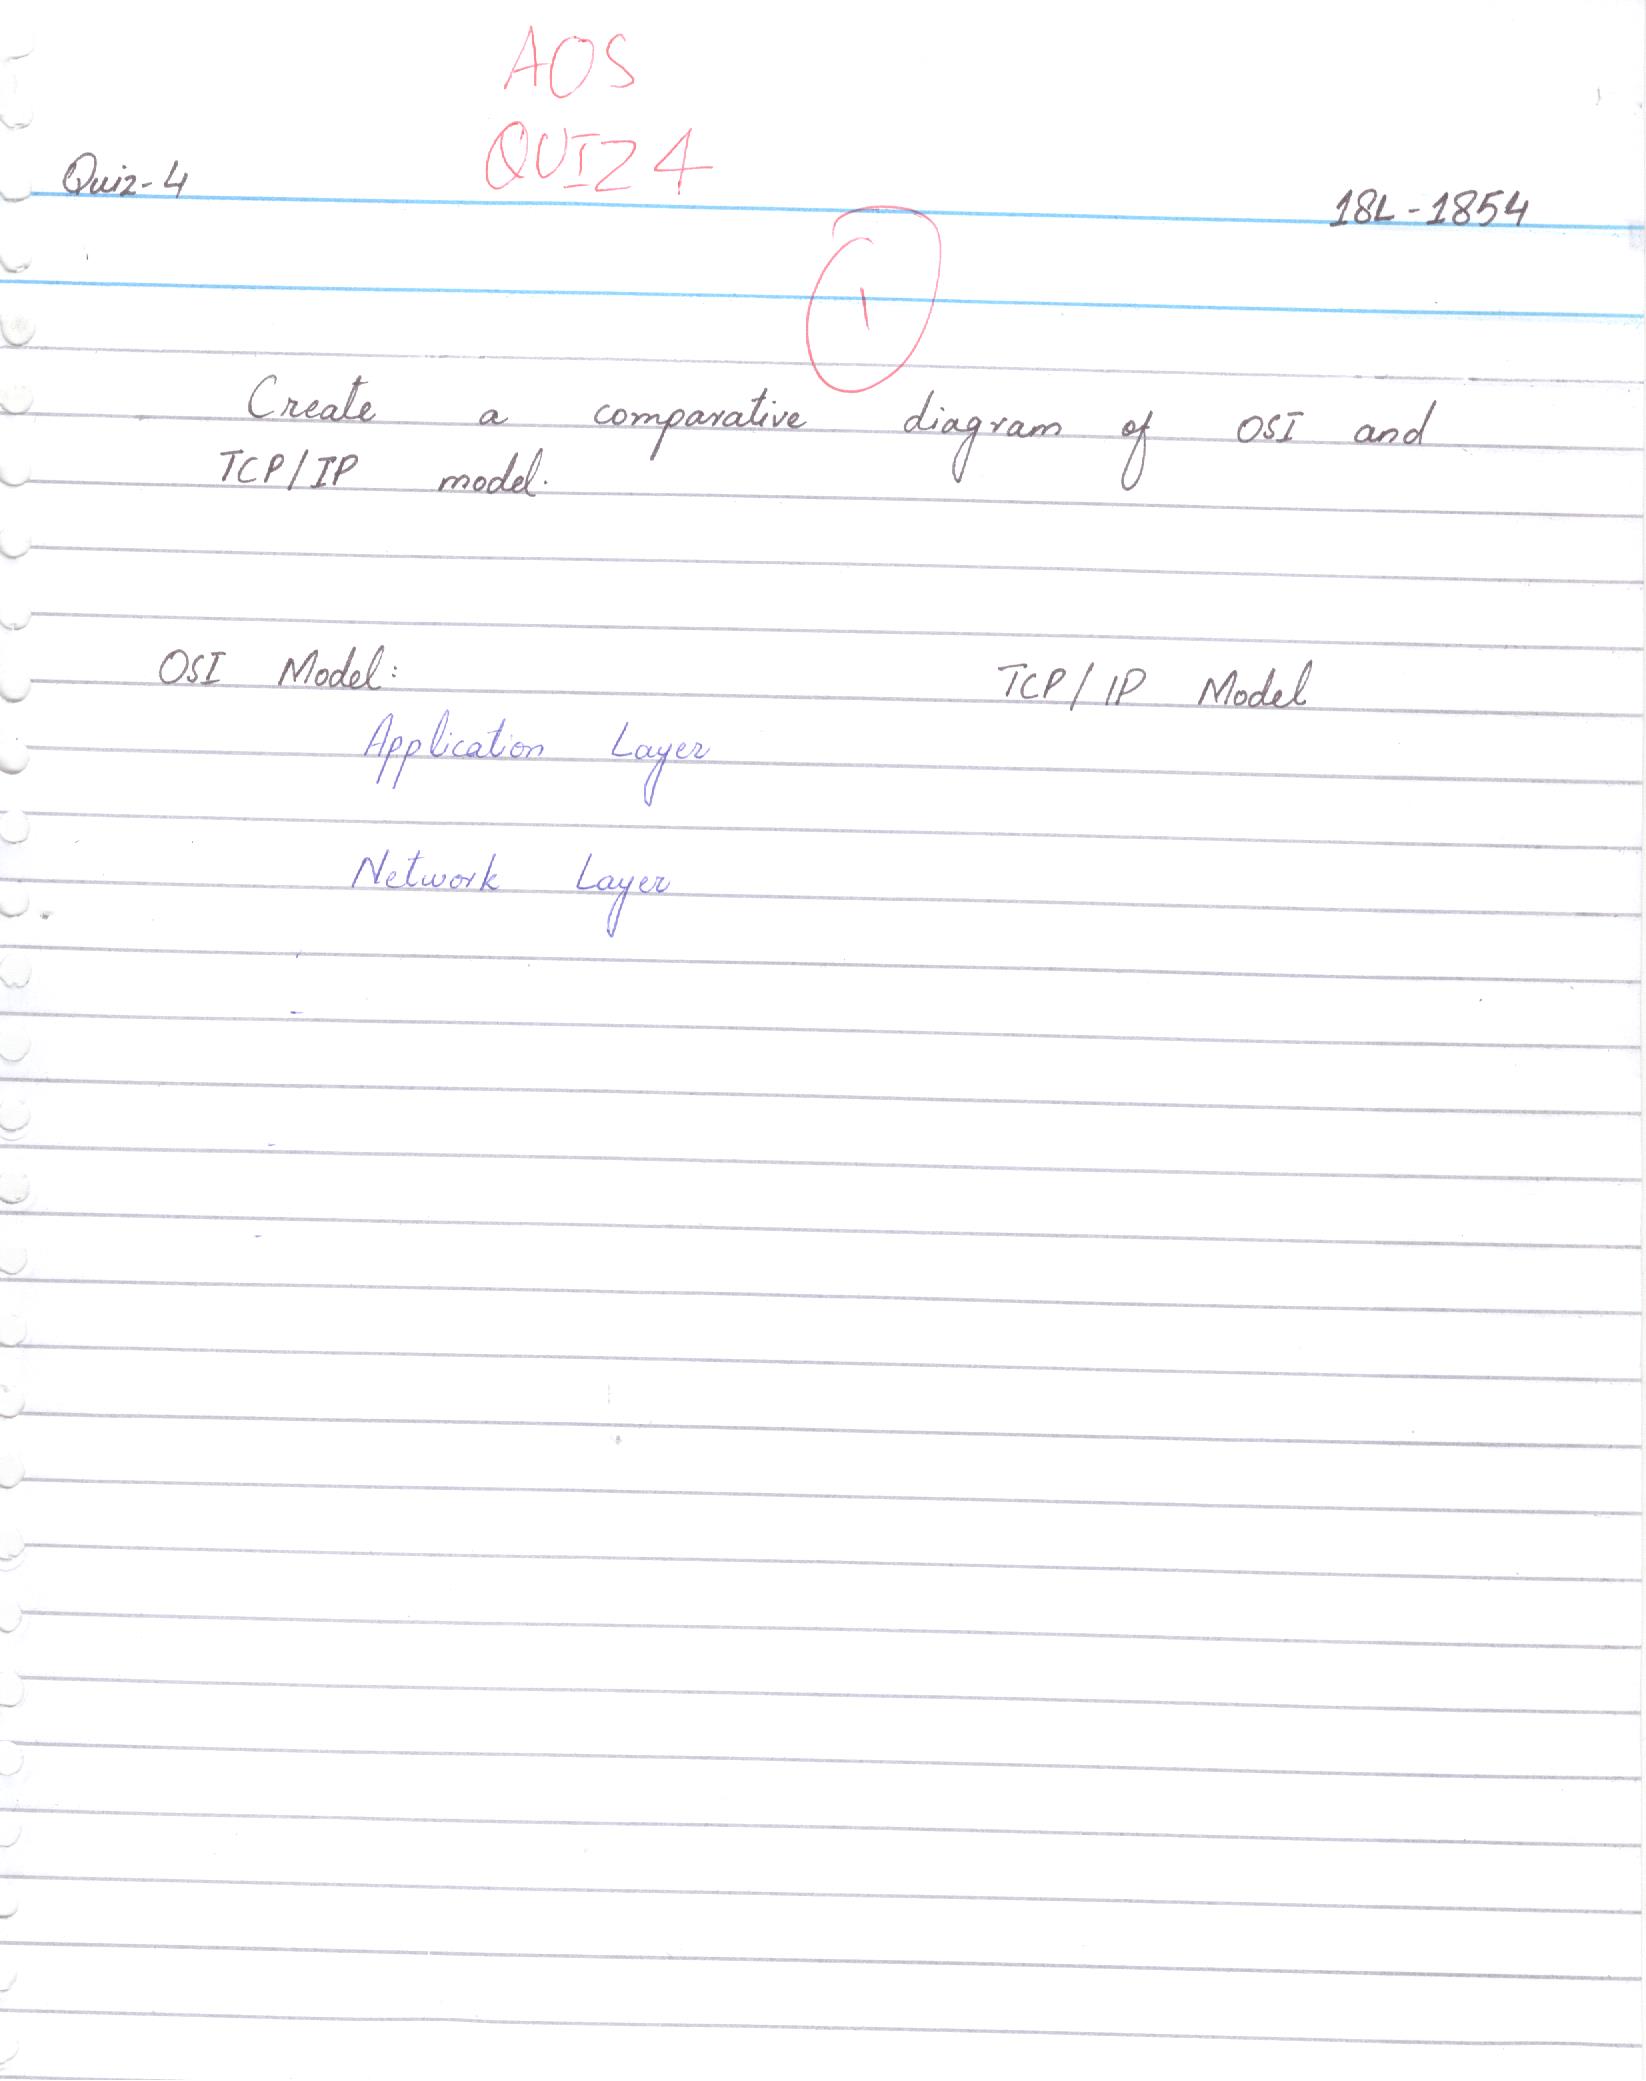 AOS
QUIZ 4
Quiz-4
18L-1854
1
Create a comparative diagram of OSI and
TCP/IP model.
OSI Model:
TCP/IP Model
Application Layer
Network Layer